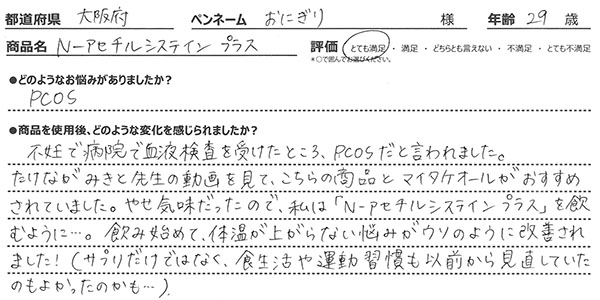 都道府県 大阪府 ペンネーム おにぎり 様 年齢 29 歳
商品名 N-アセチルシステイン プラス 評価 とても満足 ・ 満足 ・ どちらとも言えない ・ 不満足 ・ とても不満足
*○で囲んでお選びください。
●どのようなお悩みがありましたか?
PCOS
●商品を使用後、どのような変化を感じられましたか?
不妊で病院で血液検査を受けたところ、PCOSだと言われました。
たけながみきと先生の動画を見て、こちらの商品とマイタケオールがおすすめ
されていました。やせ気味だったので、私は「N-アセチルシステインプラス」を飲
むように…。飲み始めて、体温が上がらない悩みがウソのように改善され
ました!(サプリだけではなく、食生活や運動習慣も以前から見直していた
のもよかったのかも…)